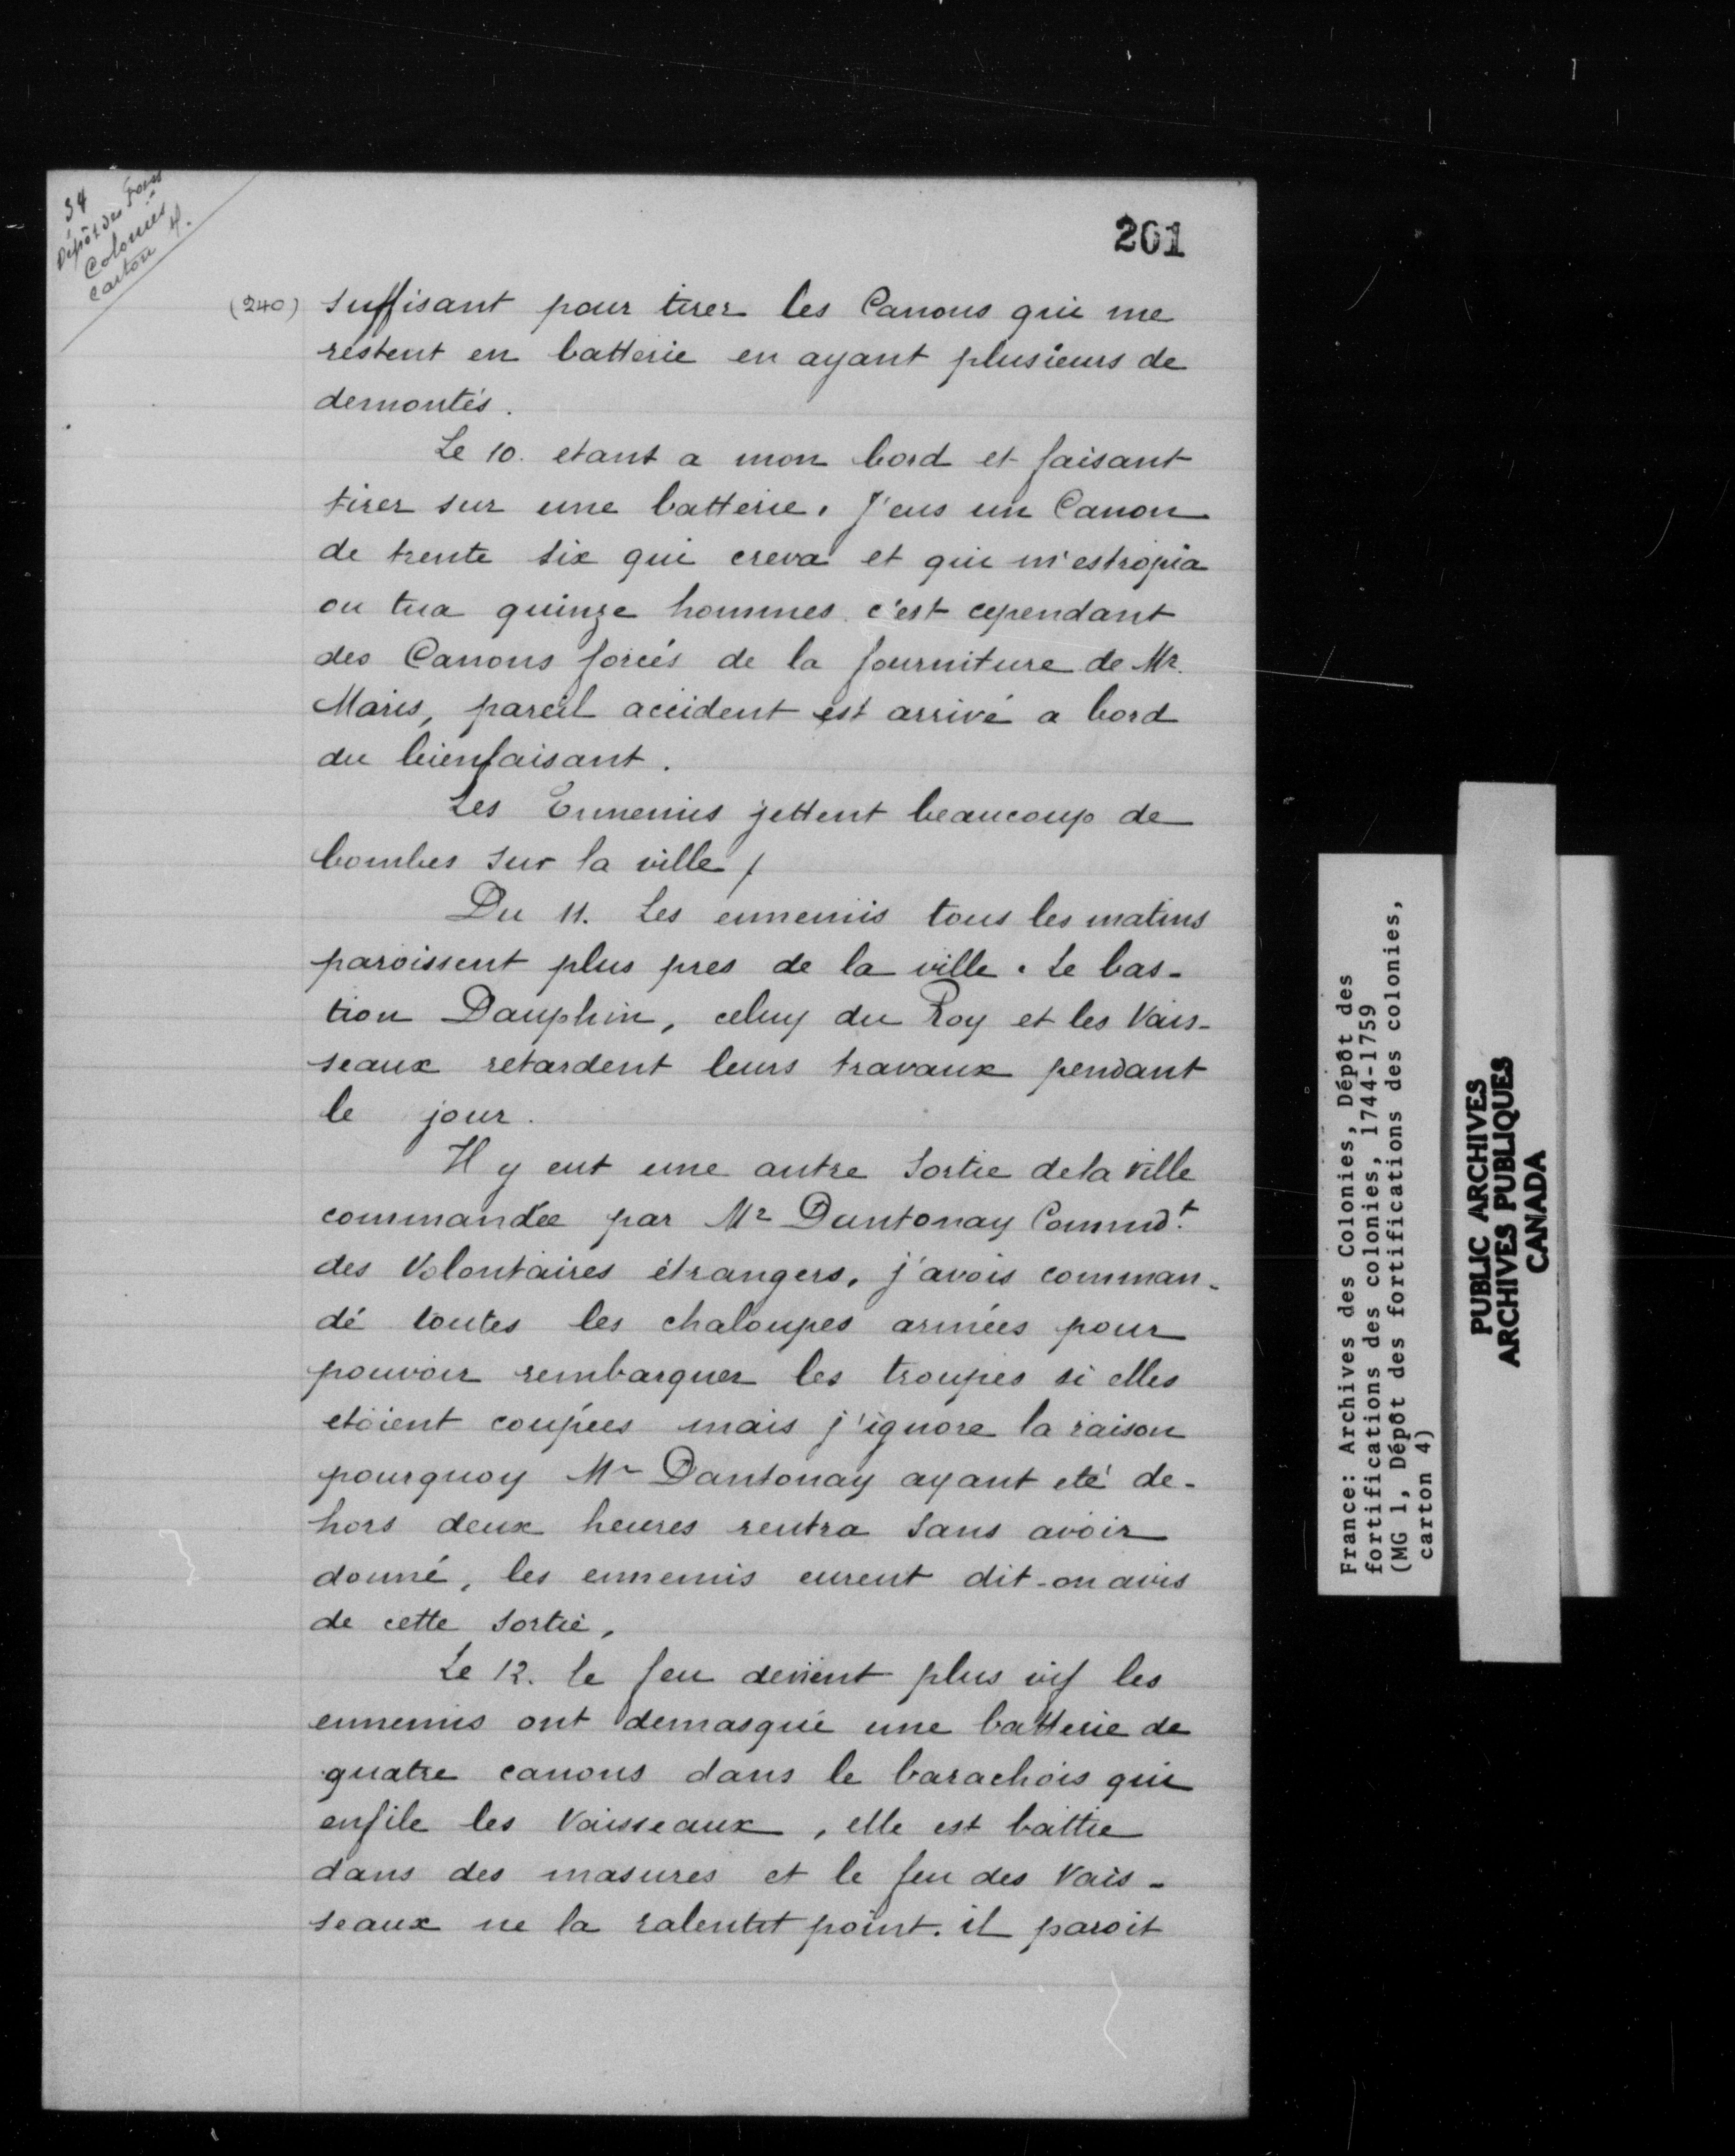 34
Dépôt des Fons
Colonies
Carton 4.
201
(240) suffisant pour tirer les Canons qui me
restent en batterie en ayant plusieurs de
demontés.
Le 10. etant a mon bord et faisant
tirer sur une batterie, J'eus un Canon
de trente six qui creva et qui m'estropia
ou tua quinze hommes. c'est cependant
des Canons forcés de la fourniture de Mr.
Maris, pareil accident est arrivé a bord
du bienfaisant.
Les Ennemis jettent beaucoup de
bombes sur la ville /
Du 11. Les ennemis tous les matins
paroissent plus pres de la ville. Le bas-
tion Dauphin, celuy du Roy et les Vais-
seaux retardent leurs travaux pendant
le jour.
Il y eut une autre sortie de la ville
commandée par Mr Dantonay Commdt.
des Volontaires étrangers, j'avois comman-
dé toutes les chaloupes armées pour
pouvoir rembarquer les troupes si elles
etoient coupées mais j'ignore la raison
pourquoy Mr Dantonay ayant eté de-
hors deux heures rentra sans avoir
donné, les ennemis eurent dit-on avis
de cette sortie,
Le 12. le feu devient plus vif les
ennemis ont demasqué une batterie de
quatre canons dans le barachois qui
enfile les Vaisseaux, elle est battie
dans des masures et le feu des Vais-
seaux ne la ralentit point. il paroit
France: Archives des Colonies, Dépôt des
fortifications des colonies, 1744-1759
(MG 1, Dépôt des fortifications des colonies,
carton 4)
PUBLIC ARCHIVES
ARCHIVES PUBLIQUES
CANADA